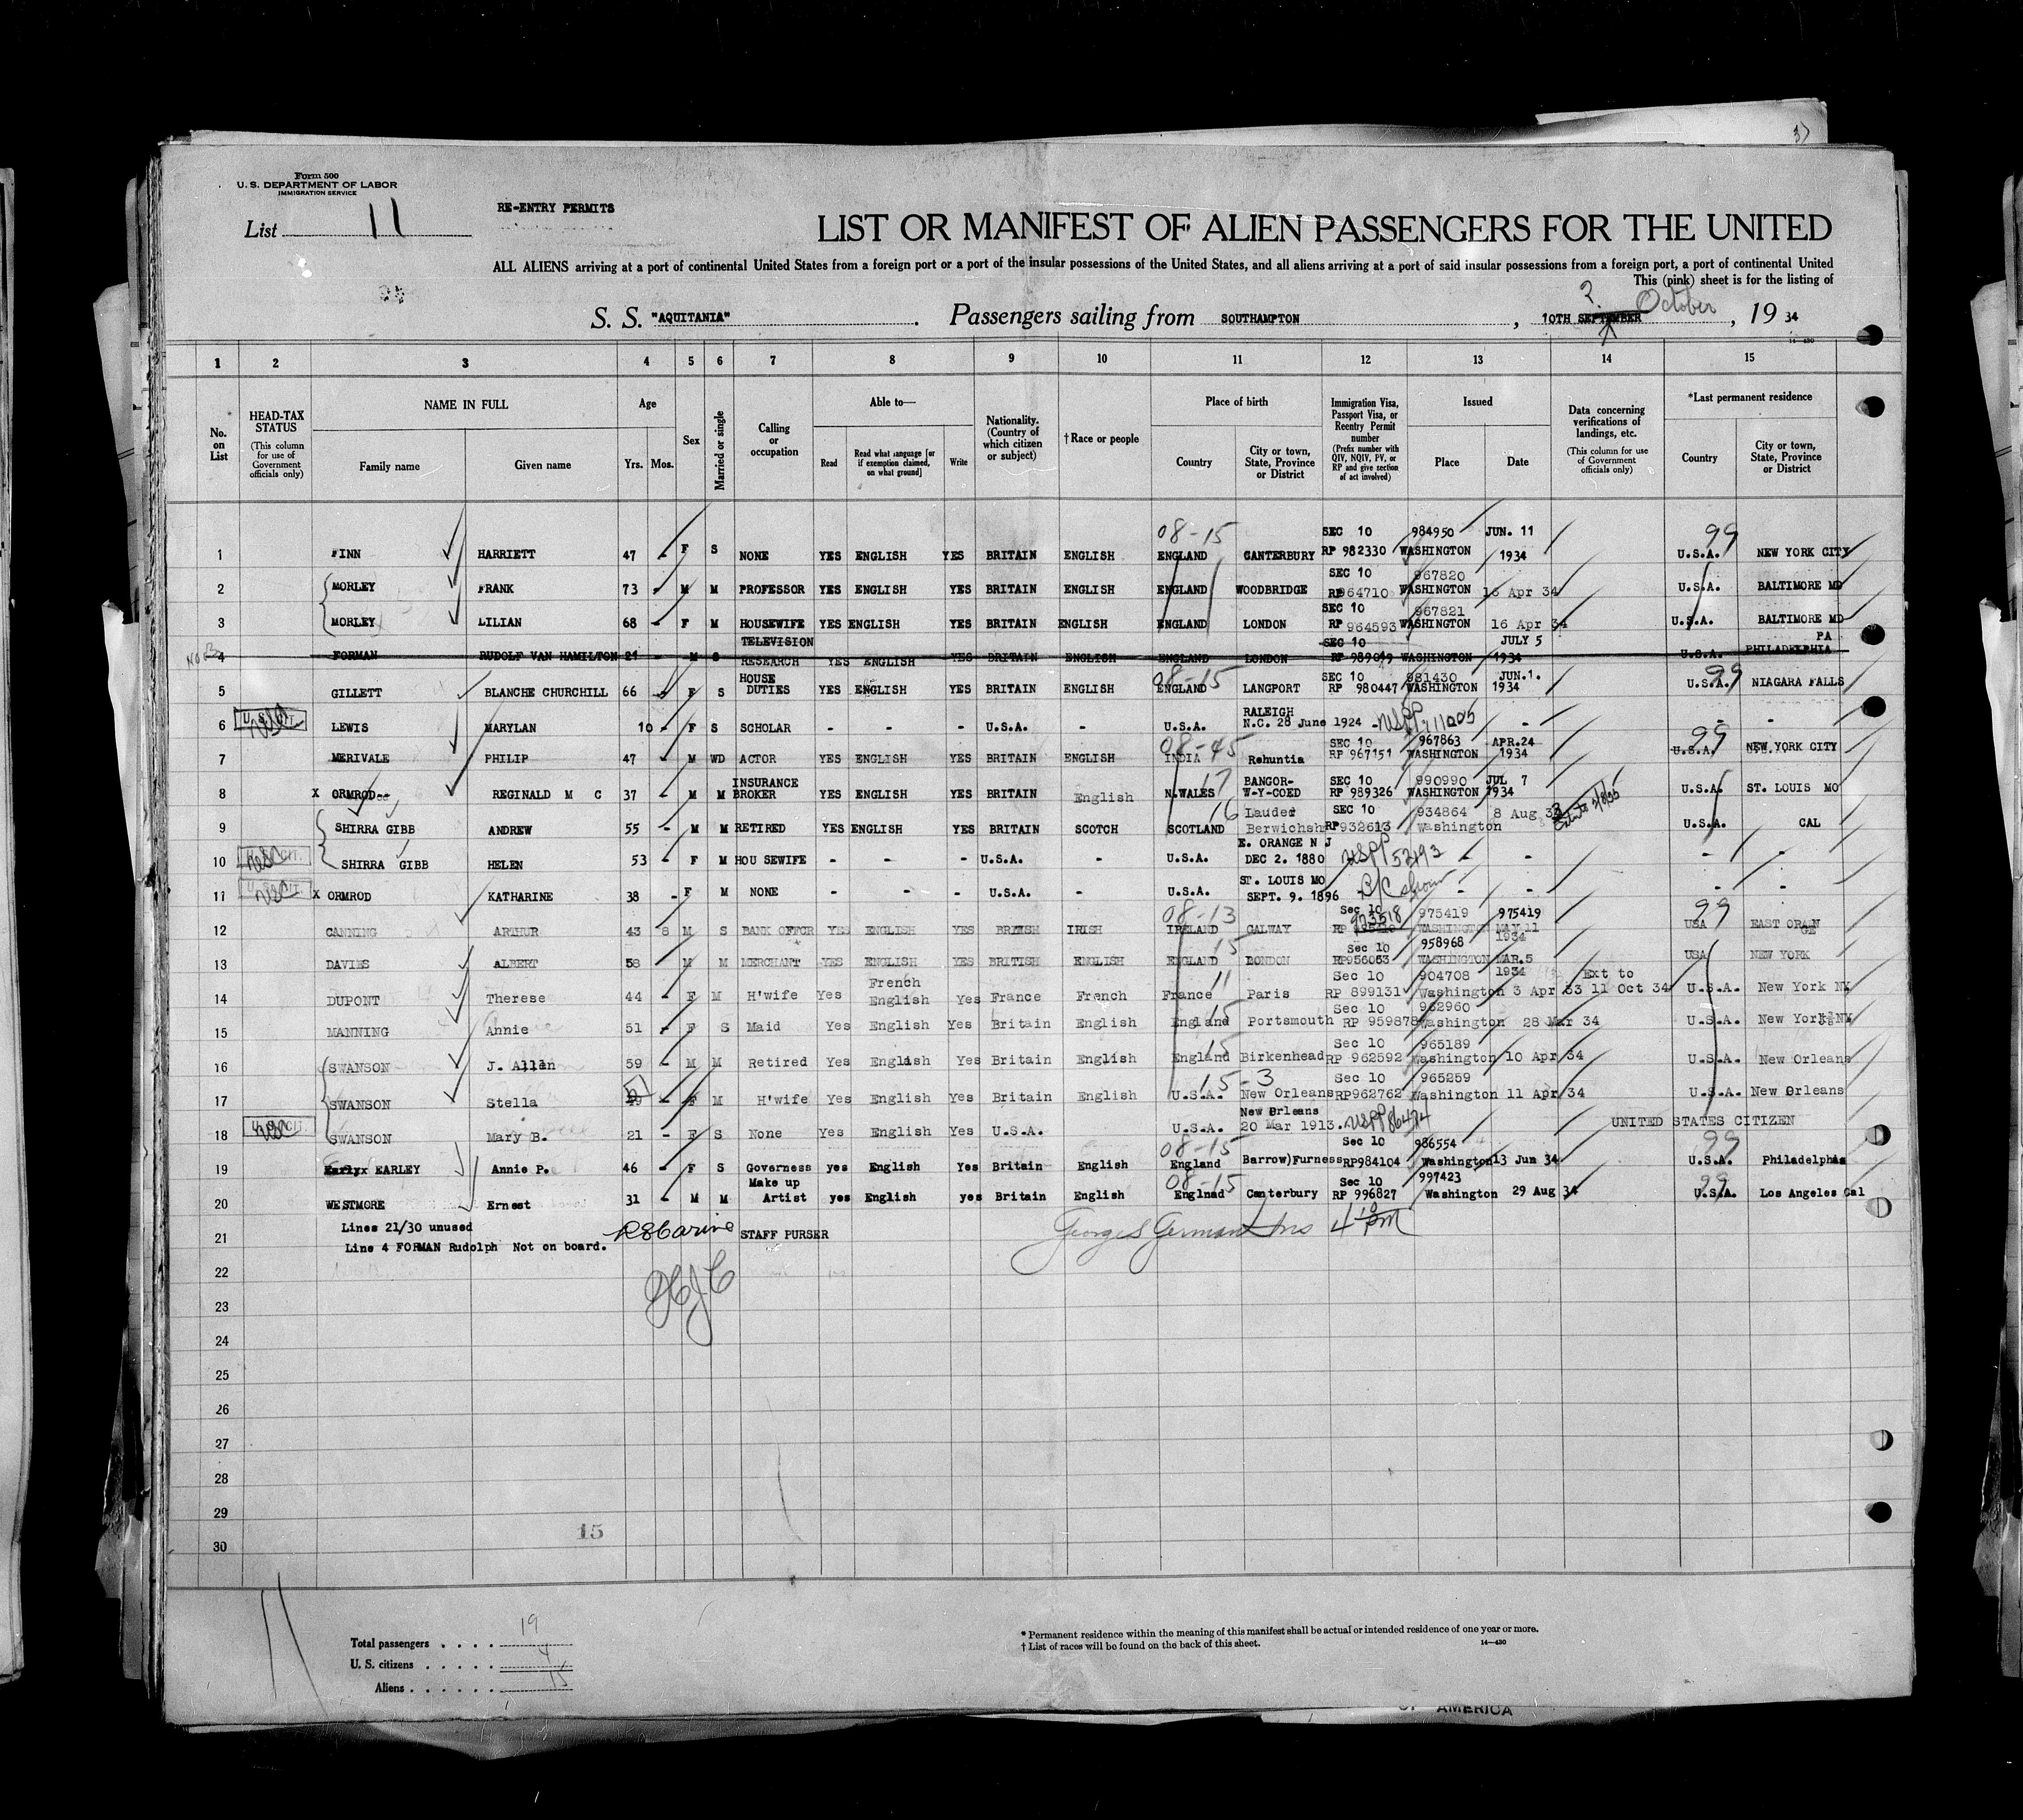 Form 500
U. S. DEPARTMENT OF LABOR
IMMIGRATION SERVICE
List 11
RE-ENTRY PERMITS
LIST OR MANIFEST OF ALIEN PASSENGERS FOR THE UNITED
ALL ALIENS arriving at a port of continental United States from a foreign port or a port of the insular possessions of the United States, and all aliens arriving at a port of said insular possessions from a foreign port, a port of continental United
This (pink) sheet is for the listing of
S. S. "AQUITANIA" Passengers sailing from SOUTHAMPTON, 10TH SEPTEMBER October, 19 34
14-430
1 2 3 4 5 6 7 8 9 10 11 12 13 14 15
No. on List
HEAD-TAX STATUS (This column for use of Government officials only)
NAME IN FULL Family name Given name
Age Yrs. Mos.
Sex
Married or single
Calling or occupation
Able to— Read Read what language [or if exemption claimed, on what ground] Write
Nationality. (Country of which citizen or subject)
†Race or people
Place of birth Country City or town, State, Province or District
Immigration Visa, Passport Visa, or Reentry Permit number (Prefix number with QIV, NQIV, PV, or RP and give section of act involved)
Issued Place Date
Data concerning verifications of landings, etc. (This column for use of Government officials only)
*Last permanent residence Country City or town, State, Province or District
08-15 SEC 10 984950 JUN. 11 99
1 FINN HARRIETT 47 - F S NONE YES ENGLISH YES BRITAIN ENGLISH ENGLAND CANTERBURY RP 982330 WASHINGTON 1934 U.S.A. NEW YORK CITY
SEC 10 967820
2 MORLEY FRANK 73 - M M PROFESSOR YES ENGLISH YES BRITAIN ENGLISH ENGLAND WOODBRIDGE RP964710 WASHINGTON 16 Apr 34 U.S.A. BALTIMORE MD
SEC 10 967821
3 MORLEY LILIAN 68 - F M HOUSEWIFE YES ENGLISH YES BRITAIN ENGLISH ENGLAND LONDON RP 964593 WASHINGTON 16 Apr 34 U.S.A. BALTIMORE MD
TELEVISION SEC 10 JULY 5 PA
4 FORMAN RUDOLF VAN HAMILTON 21 - M S RESEARCH YES ENGLISH YES BRITAIN ENGLISH ENGLAND LONDON RP 989049 WASHINGTON 1934 U.S.A. PHILADELPHIA
HOUSE 08-15 SEC 10 981430 JUN.1. 99
5 GILLETT BLANCHE CHURCHILL 66 - F S DUTIES YES ENGLISH YES BRITAIN ENGLISH ENGLAND LANGPORT RP 980447 WASHINGTON 1934 U.S.A. NIAGARA FALLS
RALEIGH
6 U.S. CIT. USC LEWIS MARYLAN 10 - F S SCHOLAR - - - U.S.A. - U.S.A. N.C. 28 June 1924 - - - -
08-45 SEC 10 967863 APR.24 99
7 MERIVALE PHILIP 47 - M WD ACTOR YES ENGLISH YES BRITAIN ENGLISH INDIA Rehuntia RP 967151 WASHINGTON 1934 U.S.A. NEW YORK CITY
INSURANCE 17 BANGOR- SEC 10 990990 JUL 7
8 X ORMROD-- REGINALD M C 37 - M M BROKER YES ENGLISH YES BRITAIN English N.WALES W-Y-COED RP 989326 WASHINGTON 1934 U.S.A. ST. LOUIS MO
16 Lauder SEC 10 934864 8 Aug 33
9 SHIRRA GIBB ANDREW 55 - M M RETIRED YES ENGLISH YES BRITAIN SCOTCH SCOTLAND Berwichsh RP932613 Washington U.S.A. CAL
E. ORANGE N J
10 U.S. CIT. USC SHIRRA GIBB HELEN 53 - F M HOUSEWIFE - - - U.S.A. - U.S.A. DEC 2. 1880 USPP 52193 - - - -
ST. LOUIS MO
11 U.S. CIT. USC X ORMROD KATHARINE 38 - F M NONE - - - U.S.A. - U.S.A. SEPT. 9. 1896 B/C shown - - - -
08-13 Sec 10 973518 975419 975419 99
12 CANNING ARTHUR 43 8 M S BANK OFFCR YES ENGLISH YES BRITISH IRISH IRELAND GALWAY RP WASHINGTON MAY 11 1934 USA EAST ORANGE
15 Sec 10 958968
13 DAVIES ALBERT 58 M M MERCHANT YES ENGLISH YES BRITISH ENGLISH ENGLAND LONDON RP956063 WASHINGTON MAR.5 1934 USA NEW YORK
French 11 Sec 10 904708 Ext to
14 DUPONT Therese 44 - F M H'wife Yes English Yes France French France Paris RP 899131 Washington 3 Apr 33 11 Oct 34 U.S.A. New York NY
15 Sec 10 962960
15 MANNING Annie 51 - F S Maid Yes English Yes Britain English England Portsmouth RP 959878 Washington 28 Mar 34 U.S.A. New York NY
15 Sec 10 965189
16 SWANSON J. Allen 59 - M M Retired Yes English Yes Britain English England Birkenhead RP 962592 Washington 10 Apr 34 U.S.A. New Orleans
15-3 Sec 10 965259
17 SWANSON Stella 49 - F M H'wife Yes English Yes Britain English U.S.A. New Orleans RP962762 Washington 11 Apr 34 U.S.A. New Orleans
New Orleans
18 U.S. CIT. USC SWANSON Mary B. 21 - F S None Yes English Yes U.S.A. U.S.A. 20 Mar 1913. USPP 86474 UNITED STATES CITIZEN
08-15 Sec 10 986554 99
19 Earlyx EARLEY Annie P. 46 - F S Governess yes English Yes Britain English England Barrow)Furness RP984104 Washington 13 Jun 34 U.S.A. Philadelphia
Make up 08-15 Sec 10 997423 99
20 WESTMORE Ernest 31 - M M Artist yes English yes Britain English Englnad Canterbury RP 996827 Washington 29 Aug 34 U.S.A. Los Angeles Cal
Lines 21/30 unused
21 STAFF PURSER George S German Ins 4 10 PM
Line 4 FORMAN Rudolph Not on board.
22
HJC
23
24
25
26
27
28
29
15
30
11
Total passengers . . . . 19
U. S. citizens . . . . . 4
Aliens . . . . . . 15
* Permanent residence within the meaning of this manifest shall be actual or intended residence of one year or more.
† List of races will be found on the back of this sheet.
14-430
OF AMERICA